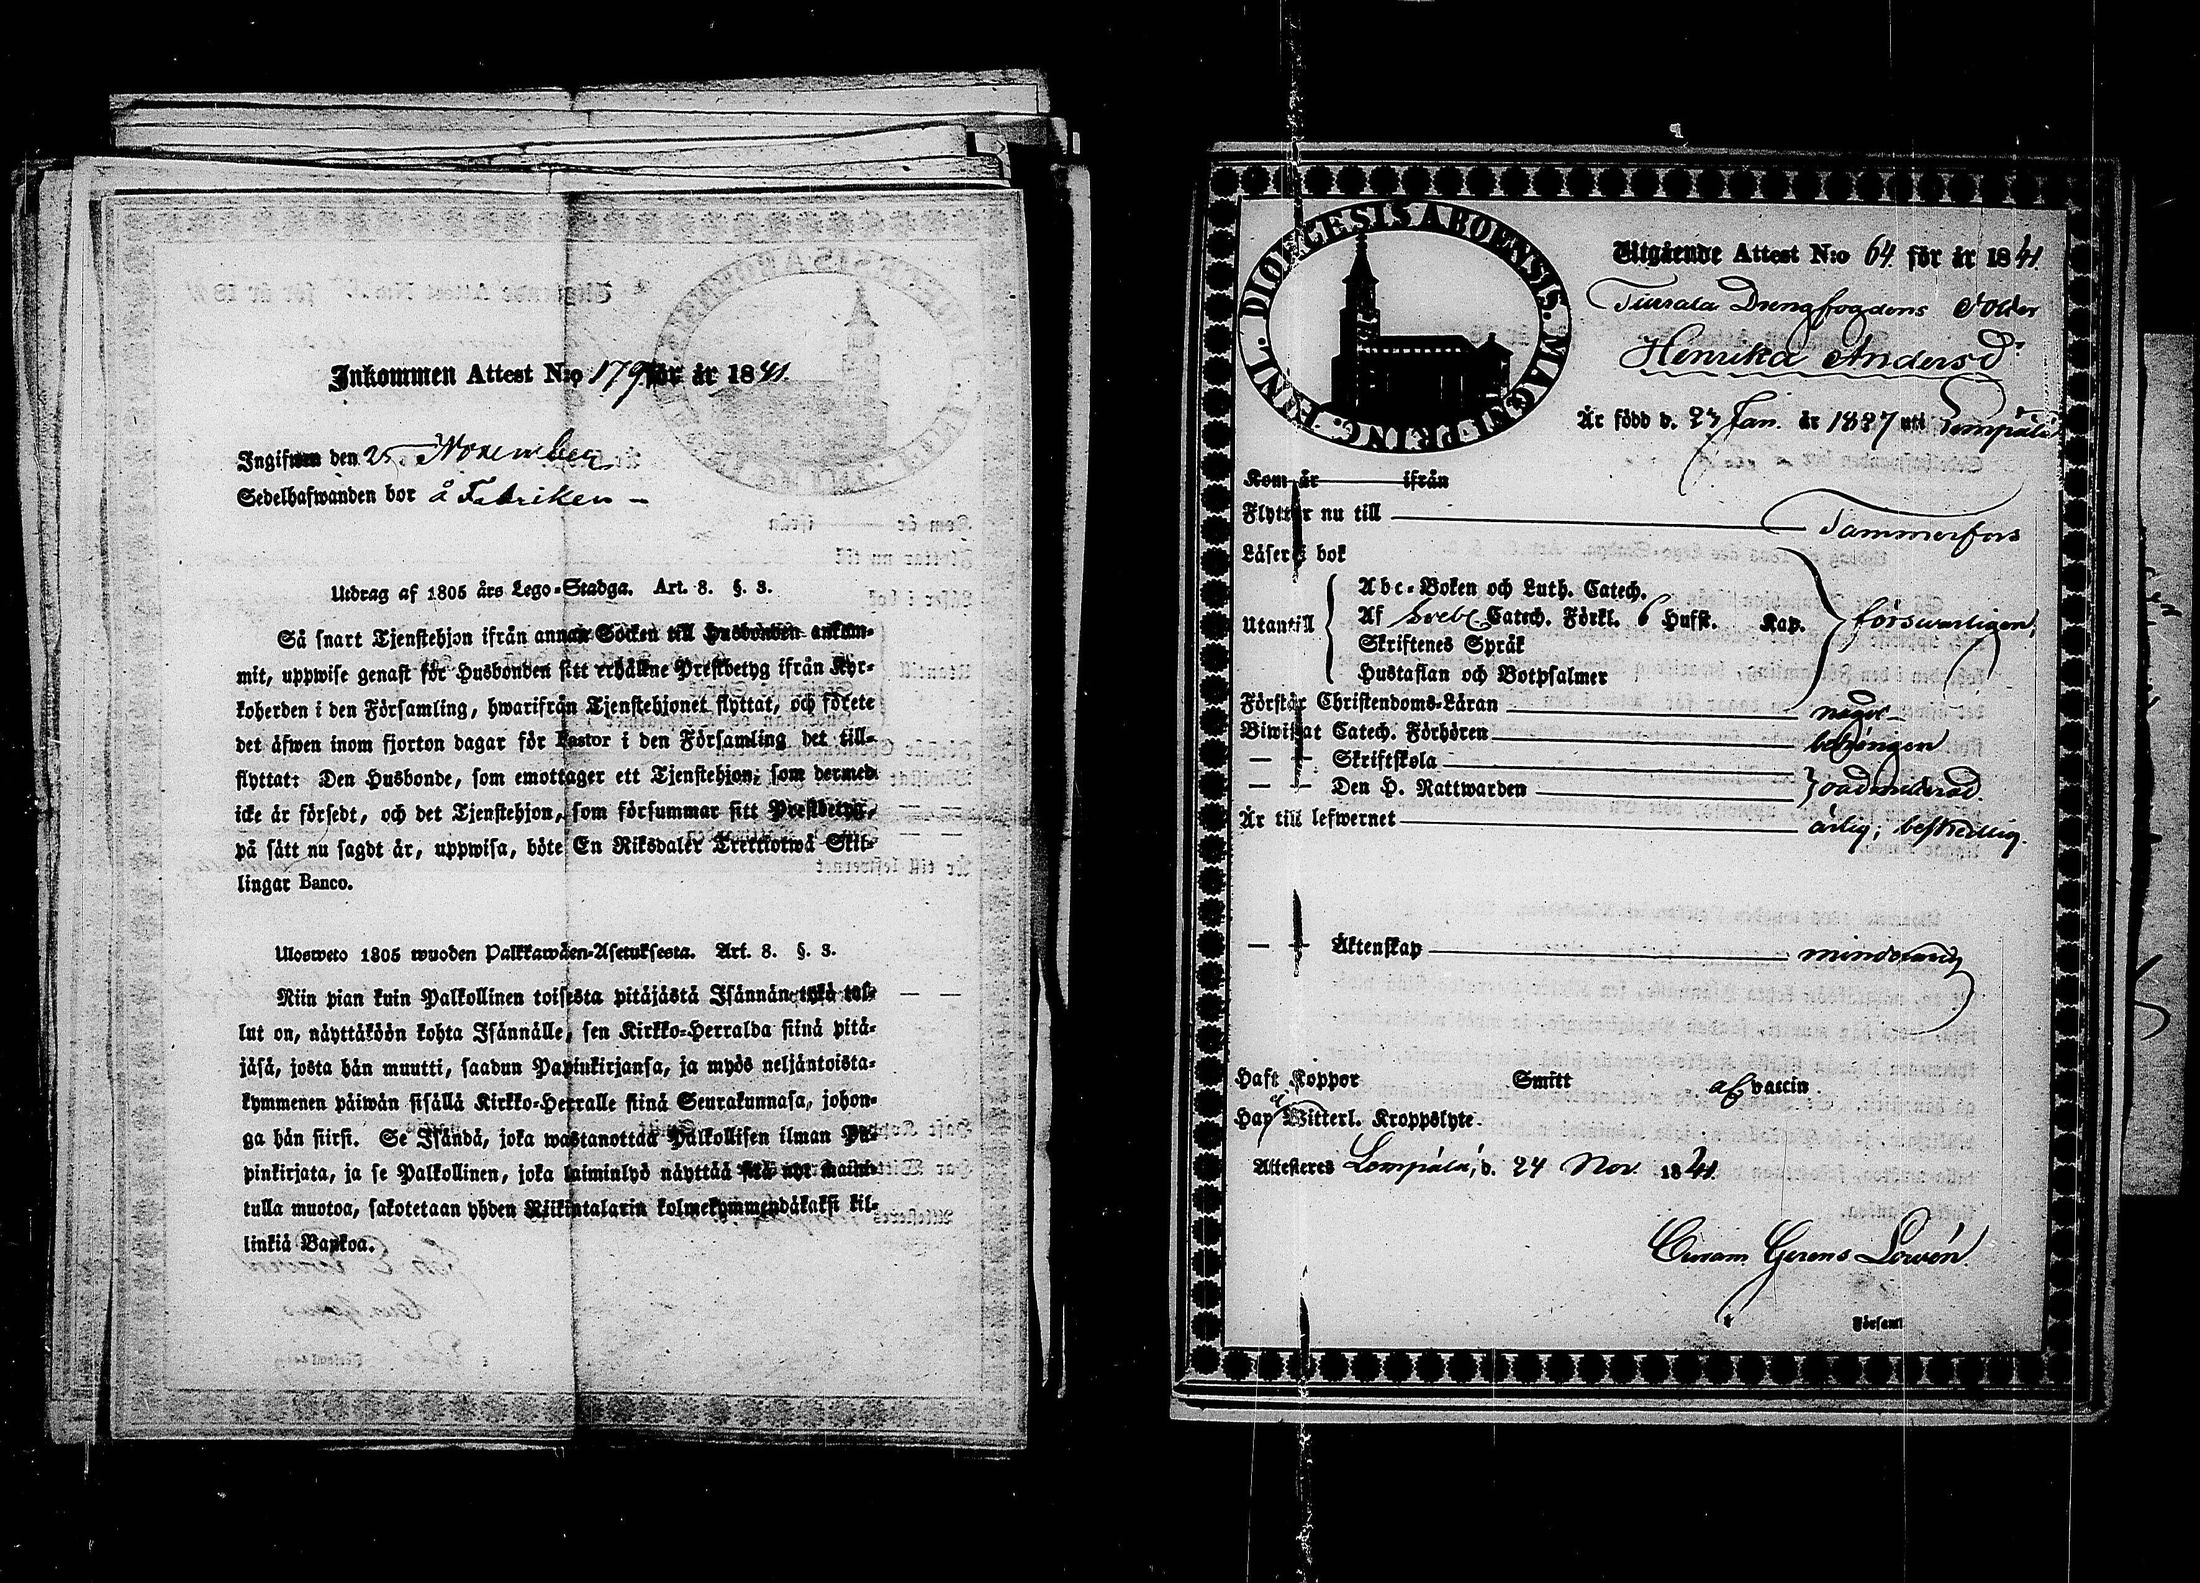 Inkommen Attest N:o 179 för år 1841.
Ingifwen den 25 November
Sedelhafwanden bor å Fabriken –
Utdrag af 1805 års Lego-Stadga. Art. 8. §. 3.
Så snart Tjenstehjon ifrån annan Socken till Husbonden ankom-
mit, uppwise genast för Husbonden sitt erhållne Prestbetyg ifrån Kyr-
koherden i den Församling, hwarifrån Tjenstehjonet flyttat, och förete
det äfwen inom fjorton dagar för Pastor i den Församling det till-
flyttat: Den Husbonde, som emottager ett Tjenstehjon, som dermed
icke är försedt, och det Tjenstehjon, som försummar sitt Prestbetyg,
på sätt nu sagdt är, uppwisa, böte En Riksdaler Trettiotwå Skil-
lingar Banco.
Ulosweto 1805 wuoden Palkkawäen-Asetuksesta. Art. 8. §. 3.
Niin pian kuin Palkollinen toisesta pitäjästä Isännän tykö tul-
lut on, näyttäköön kohta Isännälle, sen Kirkko-Herralda siinä pitä-
jäsä, josta hän muutti, saadun Papinkirjansa, ja myös neljäntoista-
kymmenen päiwän sisällä Kirkko-Herralle siinä Seurakunnasa, johon-
ga hän siirsi. Se Isändä, joka wastanottaa Palkollisen ilman Pa-
pinkirjata, ja se Palkollinen, joka laiminlyö näyttää sitä nyt maini-
tulla muotoa, sakotetaan yhden Riikintalarin kolmekymmendäkaksi kil-
linkiä Bankoa.
DIOECESIS ABOENSIS. MAGNI PRINC. FINL.
Utgående Attest N:o 64 för år 1841.
Drengfogdens Dotter
Henrika Andersd:r
Är född d. 27 Jan. år 1827 uti Lempälä
Kom år ifrån
Flyttar nu till Tammerfors
Läser i bok
Utantill
Abc-Boken och Luth. Catech.
Af Svebl. Catech. Förkl. 6 Hufst. Kap. försvarligen,
Skriftenes Språk
Hustaflan och Botpsalmer
Förstår Christendoms-Läran något
Biwistat Catech. Förhören behörigen
— — Skriftskola
— — Den H. Nattwarden oadmitterad.
Är till lefwernet ärlig, beskedlig.
— — Äktenskap minderårig
Haft Koppor Smitt af vaccin
Har ej Witterl. Kroppslyte.
Attesteres Lempälä, d. 24 Nov. 1841.
Curam Gerens Lovén.
Församl